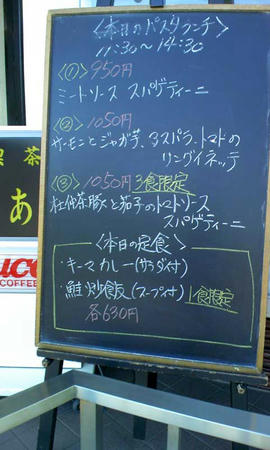 <本日のパスタランチ>
11:30〜14:30
<①> 950円
ミートソース スパゲティーニ
<②> 1050円
サーモンとジャガ芋、アスパラ、トマトの
リングイネッテ
<③> 1050円 3食限定
杜仲茶豚と茄子のトマトソース
スパゲティーニ
<本日の定食>
・キーマカレー(サラダ付)
・鮭炒飯(スープ付) 1食限定
各630円
喫茶
あ
UCC
COFFEE